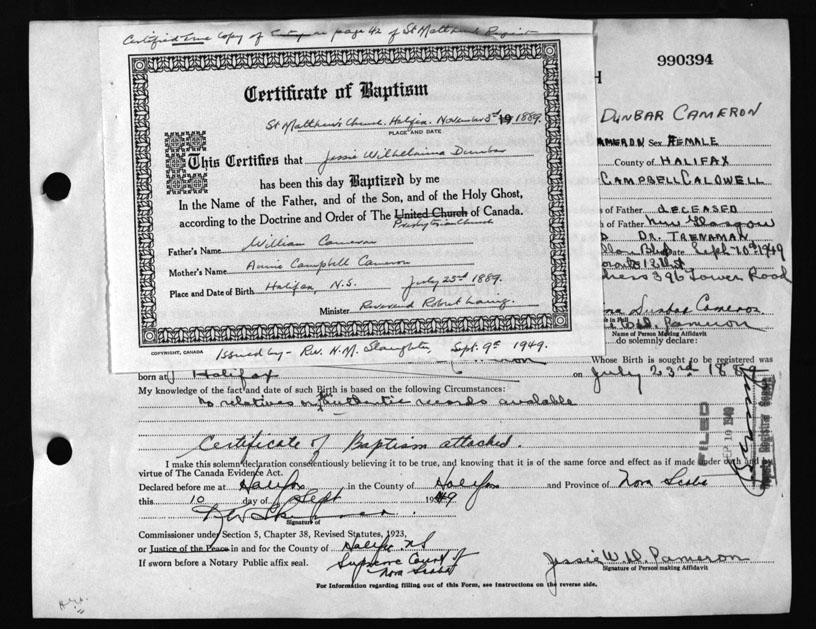 Certified true copy of page 42 of St Matthew's Register
Certificate of Baptism
St Matthew's Church. Halifax. November 3rd 19 1889.
PLACE AND DATE
This Certifies that Jessie Wilhelmina Dunbar
has been this day Baptized by me
In the Name of the Father, and of the Son, and of the Holy Ghost,
according to the Doctrine and Order of The United Church of Canada.
Presbyterian Church
Father's Name William Cameron
Mother's Name Annie Campbell Cameron
Place and Date of Birth Halifax, N.S. July 23rd 1889.
Minister Reverend Robert Laing.
COPYRIGHT, CANADA
Issued by - Rev. H.M. Slaughter, Sept. 9th 1949.
990394
H
DUNBAR CAMERON
AMERON Sex FEMALE
County of HALIFAX
CAMPBELL CALDWELL
s of Father DECEASED
of Father New Glasgow
DR. TRENAMAN
Date Sept 10th 1949
dress 396 Tower Road
na Dunbar Cameron
in Full
W.D. Cameron
Name of Person Making Affidavit
do solemnly declare:
Whose Birth is sought to be registered was
born at Halifax on July 23rd 1889
My knowledge of the fact and date of such Birth is based on the following Circumstances:
No relatives or authentic records available
Certificate of Baptism attached.
I make this solemn declaration conscientiously believing it to be true, and knowing that it is of the same force and effect as if made under oath and
virtue of The Canada Evidence Act.
Declared before me at Halifax in the County of Halifax and Province of Nova Scotia
this 10 day of Sept 1949
Signature of
Commissioner under Section 5, Chapter 38, Revised Statutes, 1923,
or Justice of the Peace in and for the County of Halifax NS
If sworn before a Notary Public affix seal. Supreme Court of
Nova Scotia
Jessie W.D. Cameron
Signature of Person making Affidavit
For Information regarding filling out of this Form, see Instructions on the reverse side.
FILED
SEP 10 1949
Deputy Registrar General